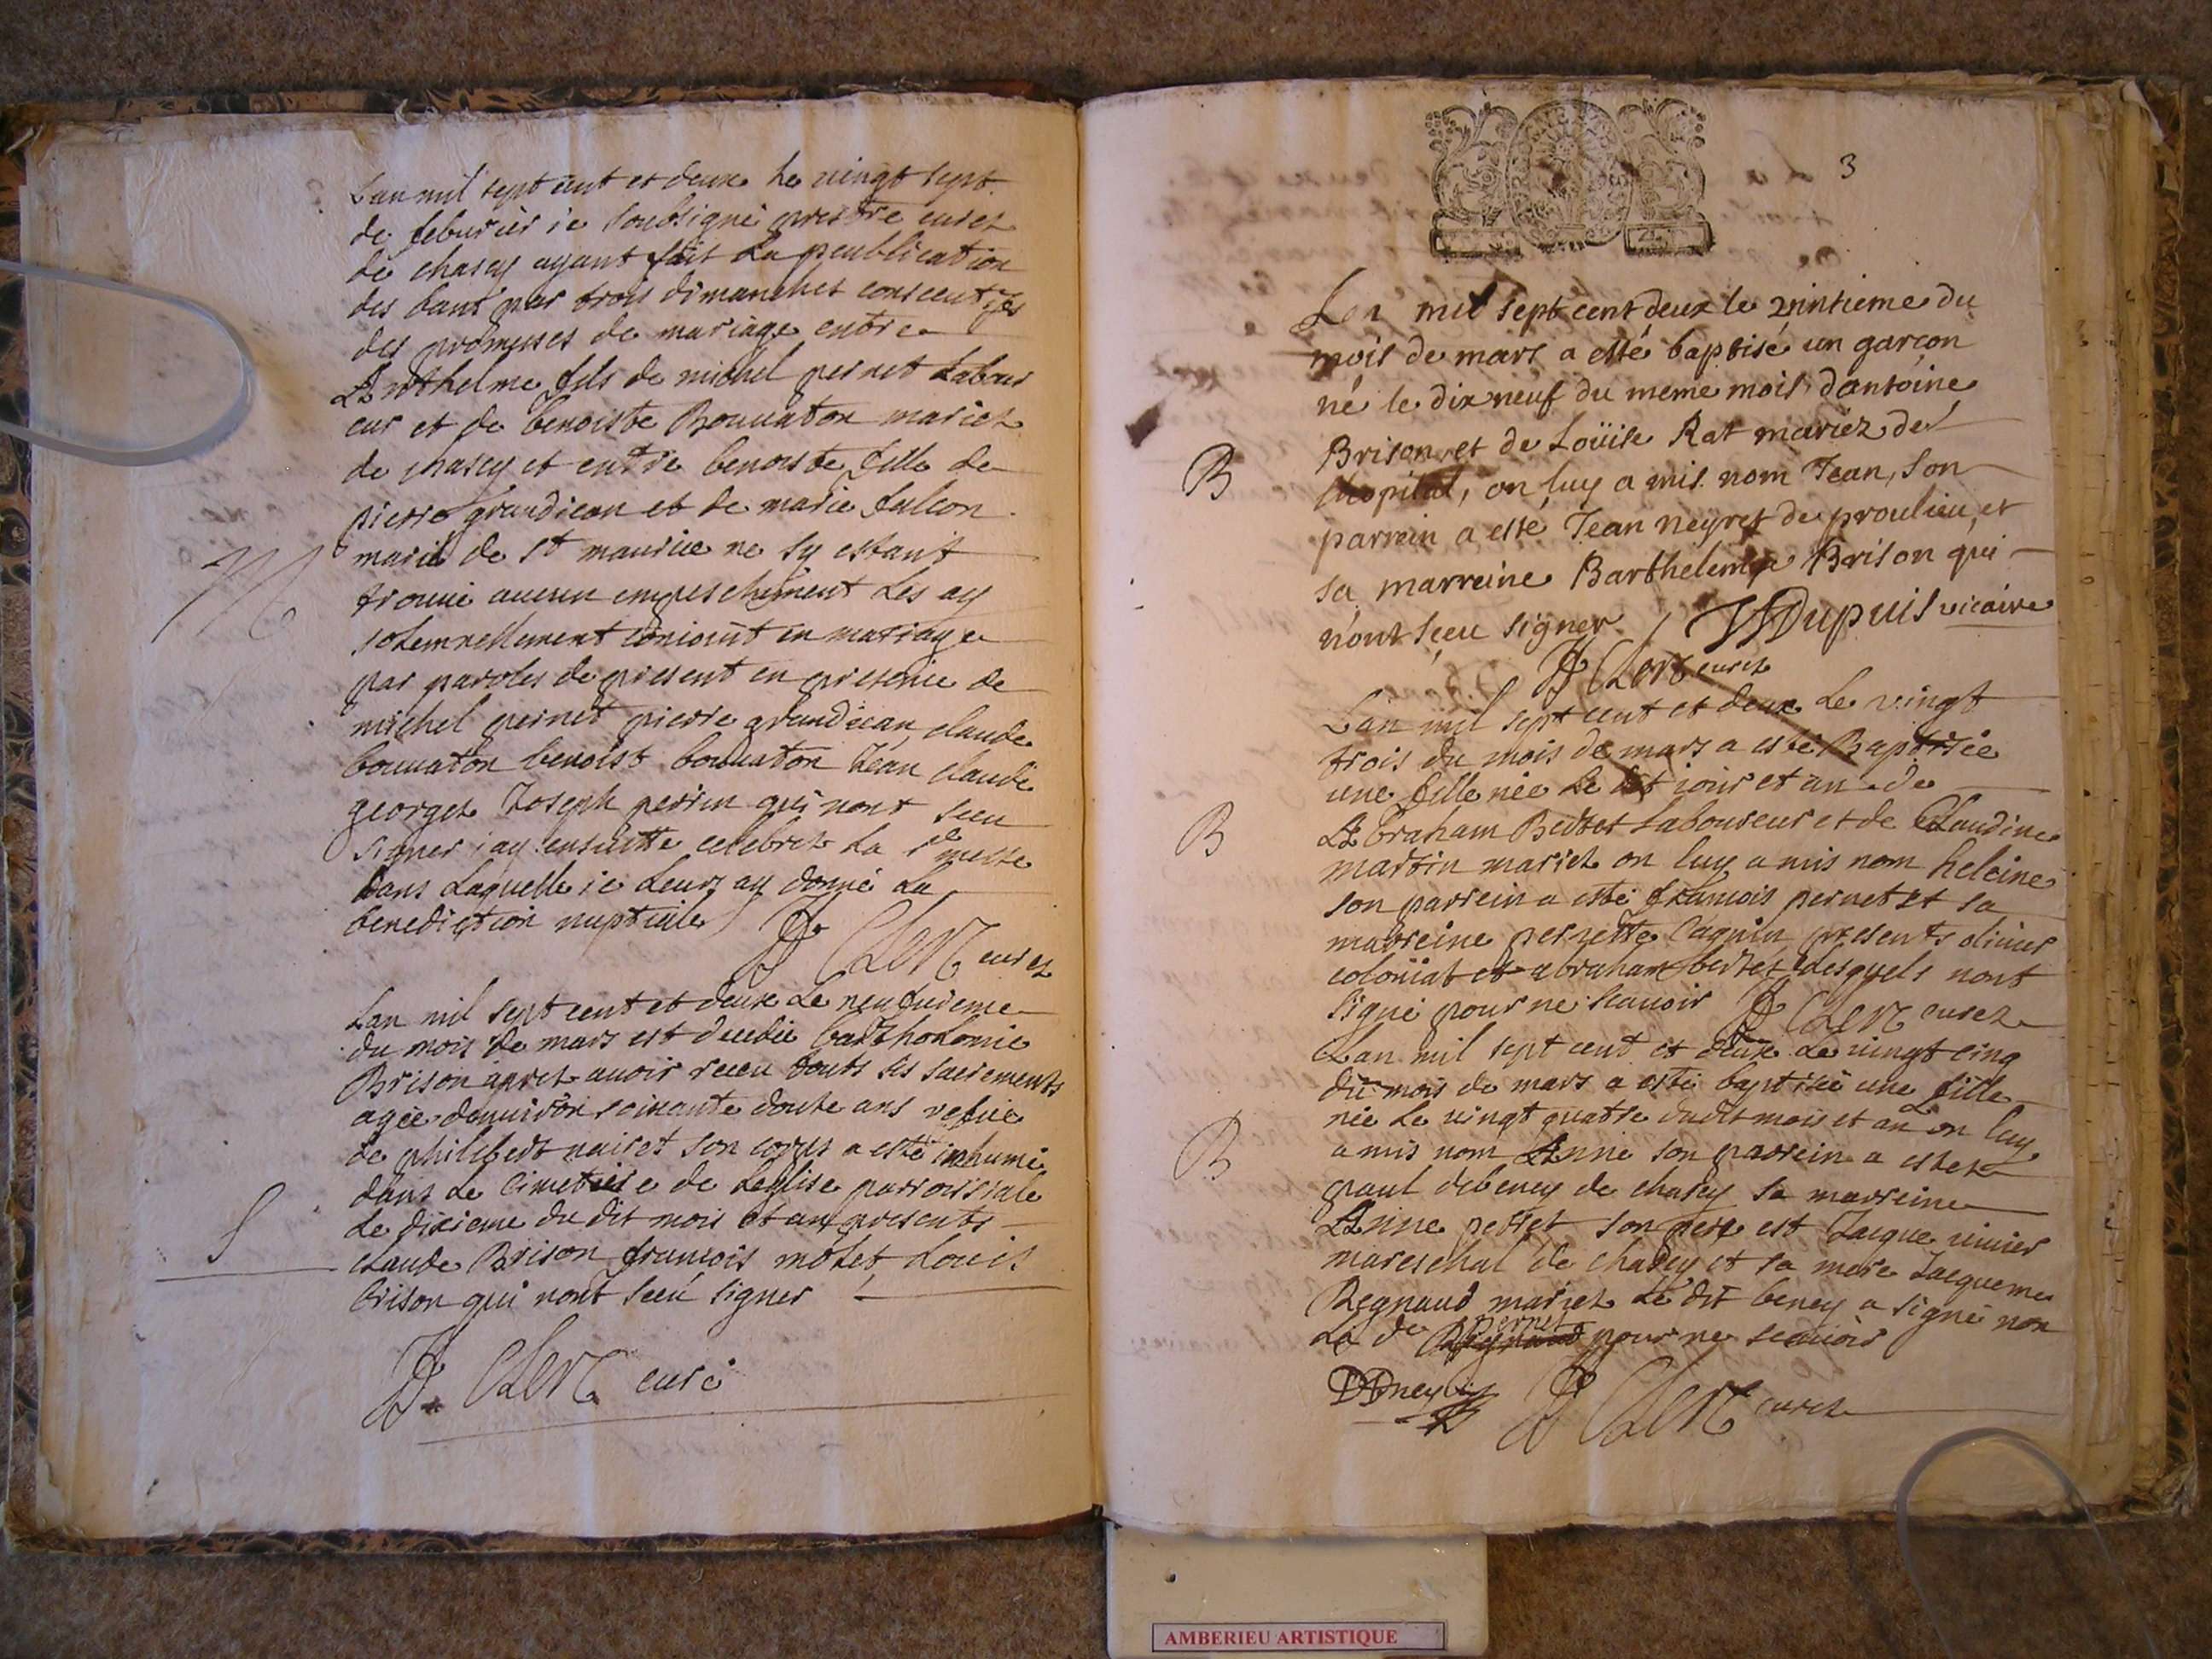 Lan mil sept cent et deux le vingt sept
de feburier ie soubsigné prestre curez
de chasey ayant fait la peublication
des bans par trois dimanches consecutifs
des promesses de mariage entre
Anthelme fils de michel pernet Labour
eur et de benoiste Bouuaton mariez
de chasey et entre benoiste fille de
pierre grandiean et de marie falcon
M
mariés de st maurice ne sy estant
trouué aucun empeschement Les ay
solemnellement conioint en mariage
par paroles de present en presence de
michel pernet pierre grandiean claude
bouuaton benoist bouuaton Jean claude
georges Joseph perrin qui nont sceu
signer iay ensuitte celebrez La ste messe
dans Laquelle ie Leurs ay donné La
benediction nuptiale
J Clerc curez
Lan mil sept cent et deux Le neufuieme
du mois de mars est decedée bartholomie
Brison aprez auoir receu touts ses sacrements
agée denuiron soixante douze ans vefue
de philibert nairet son corps a esté inhumé
dans Le Cimetiere de Leglise parroissiale
S
Le dixieme du dit mois et an presents
claude Brison francois molet Louis
brison qui nont sceu signer
J. Clerc curé
3
Lan mil sept cent deux le vintieme du
mois de mars a esté baptisé un garçon
né le dix neuf du meme mois d'antoine
Brison et de Loüise Rat mariéz de
B
lhopital, on luy a mis nom Jean, son
parrain a esté Jean neyret de proulieu, et
sa marreine Barthelemie Brison qui
n'ont sçeu signer / Dupuis vicaire
J Clerc curez
Lan mil sept cent et deux Le vingt
trois du mois de mars a esté Baptisée
une fille née Le dit iour et an de
B
Abraham Bertet Laboureur et de Claudine
martin mariez on luy a mis nom heleine
son parrein a esté francois pernet et sa
marreine pernette Caguin presents oliuier
coloniat et abraham bertet Lesquels nont
signé pour ne scauoir J Clerc curez
Lan mil sept cent et deux Le vingt cinq
du mois de mars a esté baptisée une fille
née Le vingt quatre dudit mois et an on luy
B
a mis nom Anne son parrein a estez
paul debeney de chasey sa marreine
Anne pernet son pere est Jacque uiuier
mareschal de chasey et sa mere Jacqueme
Regnaud mariez Le dit beney a signé non
La de pernet pour ne scauoir
J Clerc curez
AMBERIEU ARTISTIQUE